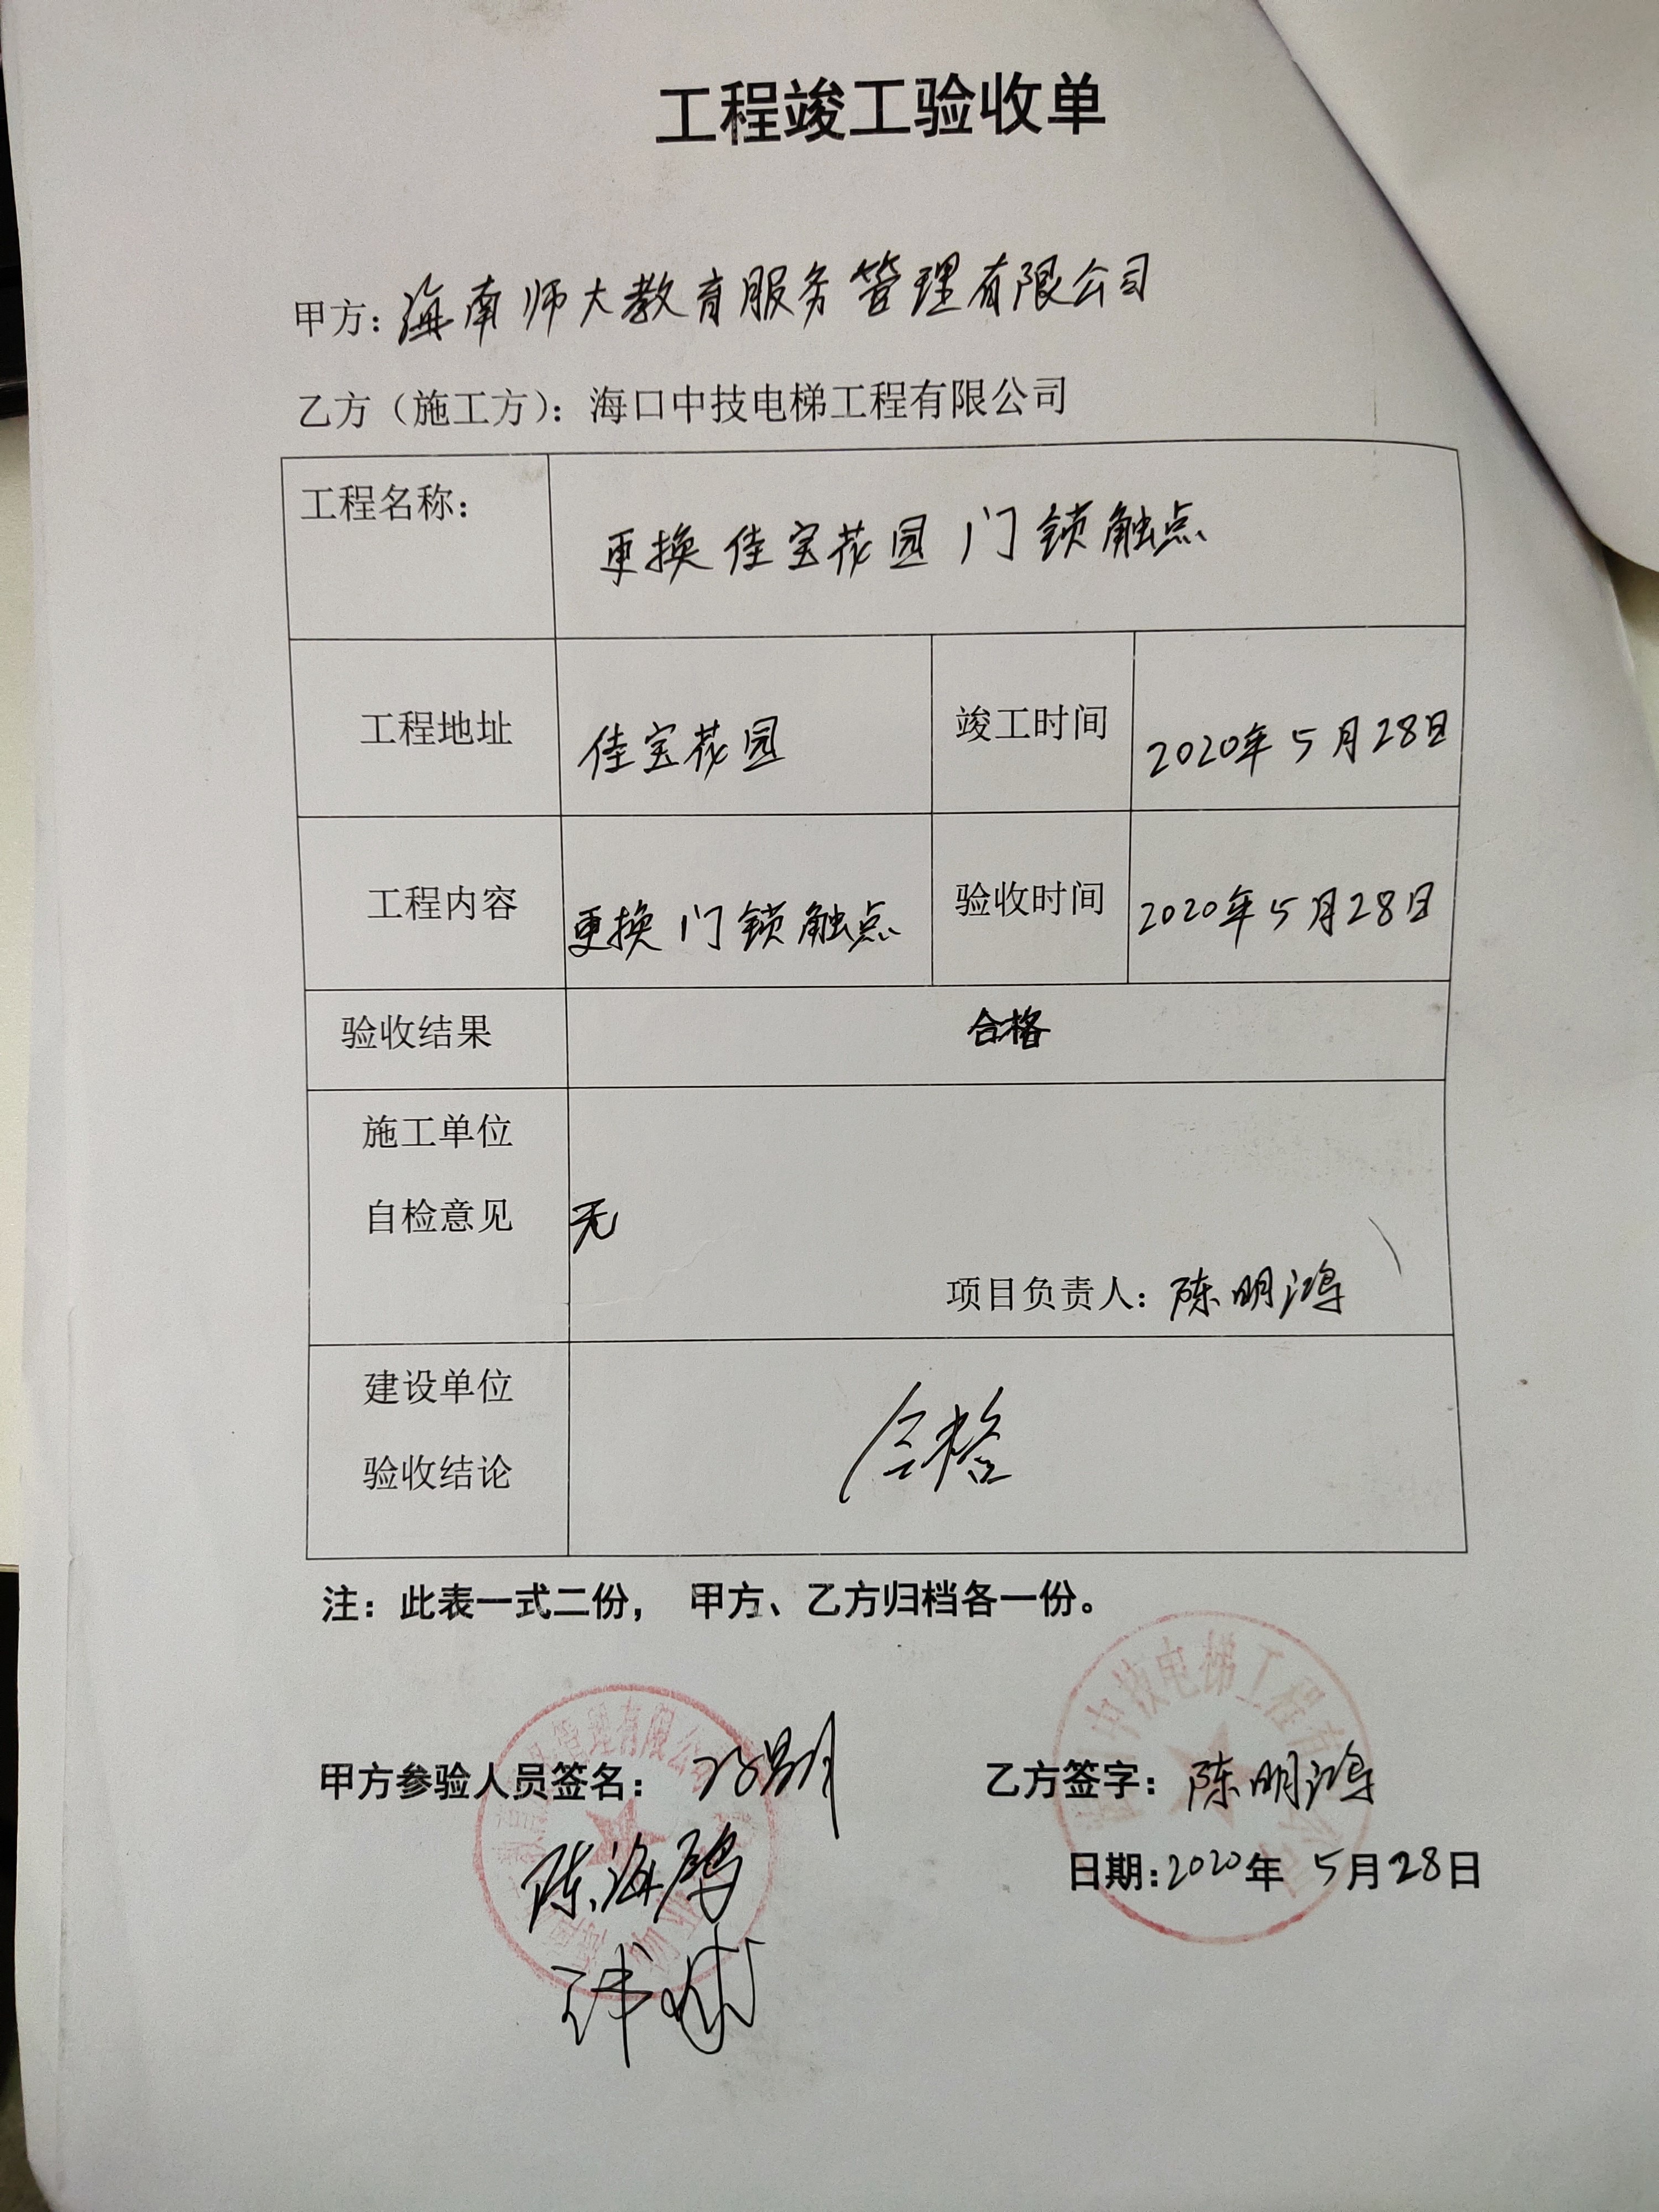 工程竣工验收单
甲方：海南师大教育服务管理有限公司
乙方（施工方）：海口中技电梯工程有限公司
工程名称： 更换佳宝花园门锁触点
工程地址 佳宝花园 竣工时间 2020年5月28日
工程内容 更换门锁触点 验收时间 2020年5月28日
验收结果 合格
施工单位
自检意见 无
项目负责人：陈明鸿
建设单位
验收结论 合格
注：此表一式二份， 甲方、乙方归档各一份。
中技电梯工程有
管理有限公
甲方参验人员签名： 乙方签字：陈明鸿
陈海鹏
日期：2020年 5月28日